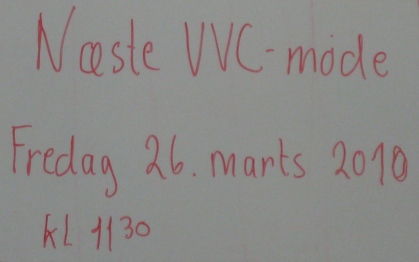 Næste VVC-møde
Fredag 26. marts 2010
kl 1130